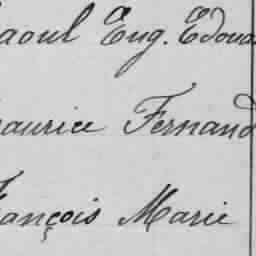 aoul Eug. Edoua
aurice Fernand
ançois Marie